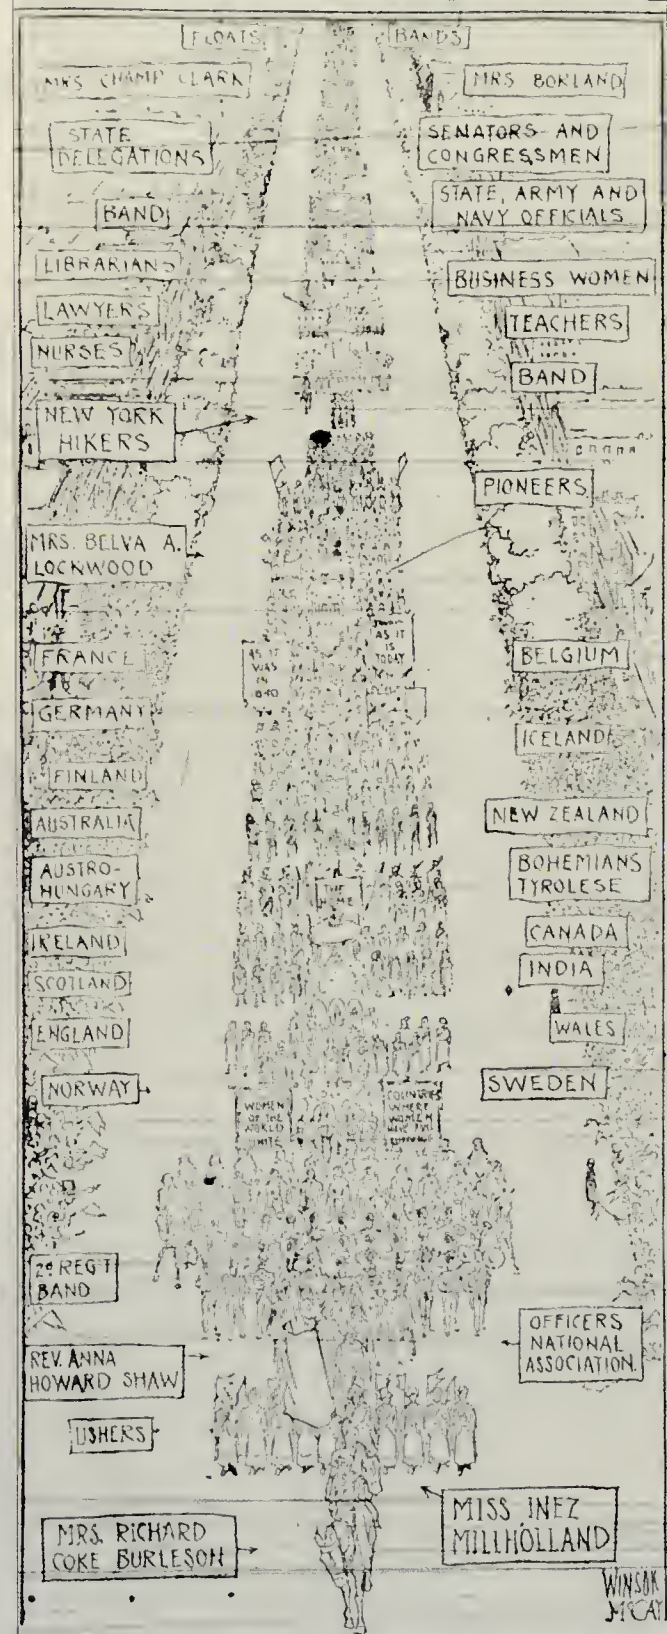 FLOATS
BANDS
MRS. CHAMP CLARK
MRS BORLAND
STATE
DELEGATIONS
SENATORS AND
CONGRESSMEN
BAND
STATE, ARMY AND
NAVY OFFICIALS
LIBRARIANS
BUSINESS WOMEN
LAWYERS
TEACHERS
NURSES
BAND
NEW YORK
HIKERS
PIONEERS
MRS. BELVA A.
LOCKWOOD
AS IT
WAS
IN
1840
AS IT
IS
TODAY
FRANCE
BELGIUM
GERMANY
ICELAND
FINLAND
AUSTRALIA
NEW ZEALAND
AUSTRO-
HUNGARY
BOHEMIANS
TYROLESE
THE
IRELAND
CANADA
SCOTLAND
INDIA
ENGLAND
WALES
NORWAY
SWEDEN
WOMEN
OF THE
WORLD
UNITE
COUNTRIES
WHERE
WOMEN
HAVE
2D REG'T
BAND
OFFICERS
NATIONAL
ASSOCIATION.
REV. ANNA
HOWARD SHAW
USHERS
MISS INEZ
MILLHOLLAND
MRS. RICHARD
COKE BURLESON
WINSOR
MCCAY